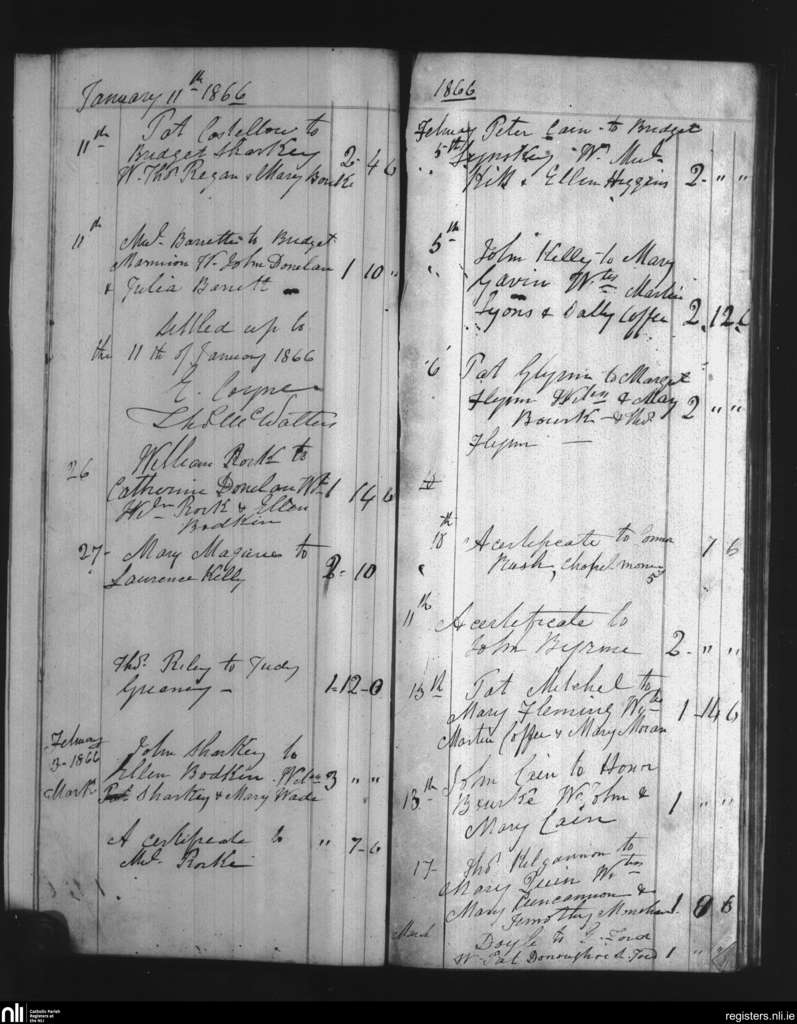 January 11th 1866
11th Pat Costellow to
Bridget Sharkey 2- 4 6
Ws Thos Regan & Mary Bourke
11th Mic. Barrett to Bridget
Mannion W. John Donelan 1 10 "
& Julia Barrett
Settled up to
the 11th of January 1866
E. Coyne
Thos McWalters
26 William Rork to
Catherine Donelan Wt 1 14 6
Wm Rork & Ellen
Bodkin
27- Mary Magaree to
Laurence Kelly 2- 10
Thos. Riley to Judy
Greaney - 1-12-0
February
3-1866 John Sharkey to
Ellen Bodkin 3 " "
Mark Sharkey & Mary Wade
A certificate to " 7-6
Mic. Rorke
1866
February Peter Cain to Bridget
5th
" Kilk & Ellen Higgins 2- " "
5th John Kelly to Mary
" Gavin Wtss Martin
Lyons & Dally Coffee 2. 12. 6
6 Pat Glynn to Marget
Flynn & Mary 2 " "
Bourk - & Thos.
Flynn -
10th A certificate to 7 6
Nash, Chapel money
5s
11th A certificate to
John Byrne 2- " "
13th Pat Mitchel to
Mary Fleming Wts 1 -14 6
Martin Coffee & Mary Moran
13th John Cain to Honor
Bourke W. John & 1 " "
Mary Cain
17- Thos Kilgannon to
Mary Quin Wtss
Mary &
Timothy 1 0 6
March Doyle to E. Ford
W Pat Donoughoe & Ford 1 "
nli
Catholic Parish
Registers at
the NLI
registers.nli.ie